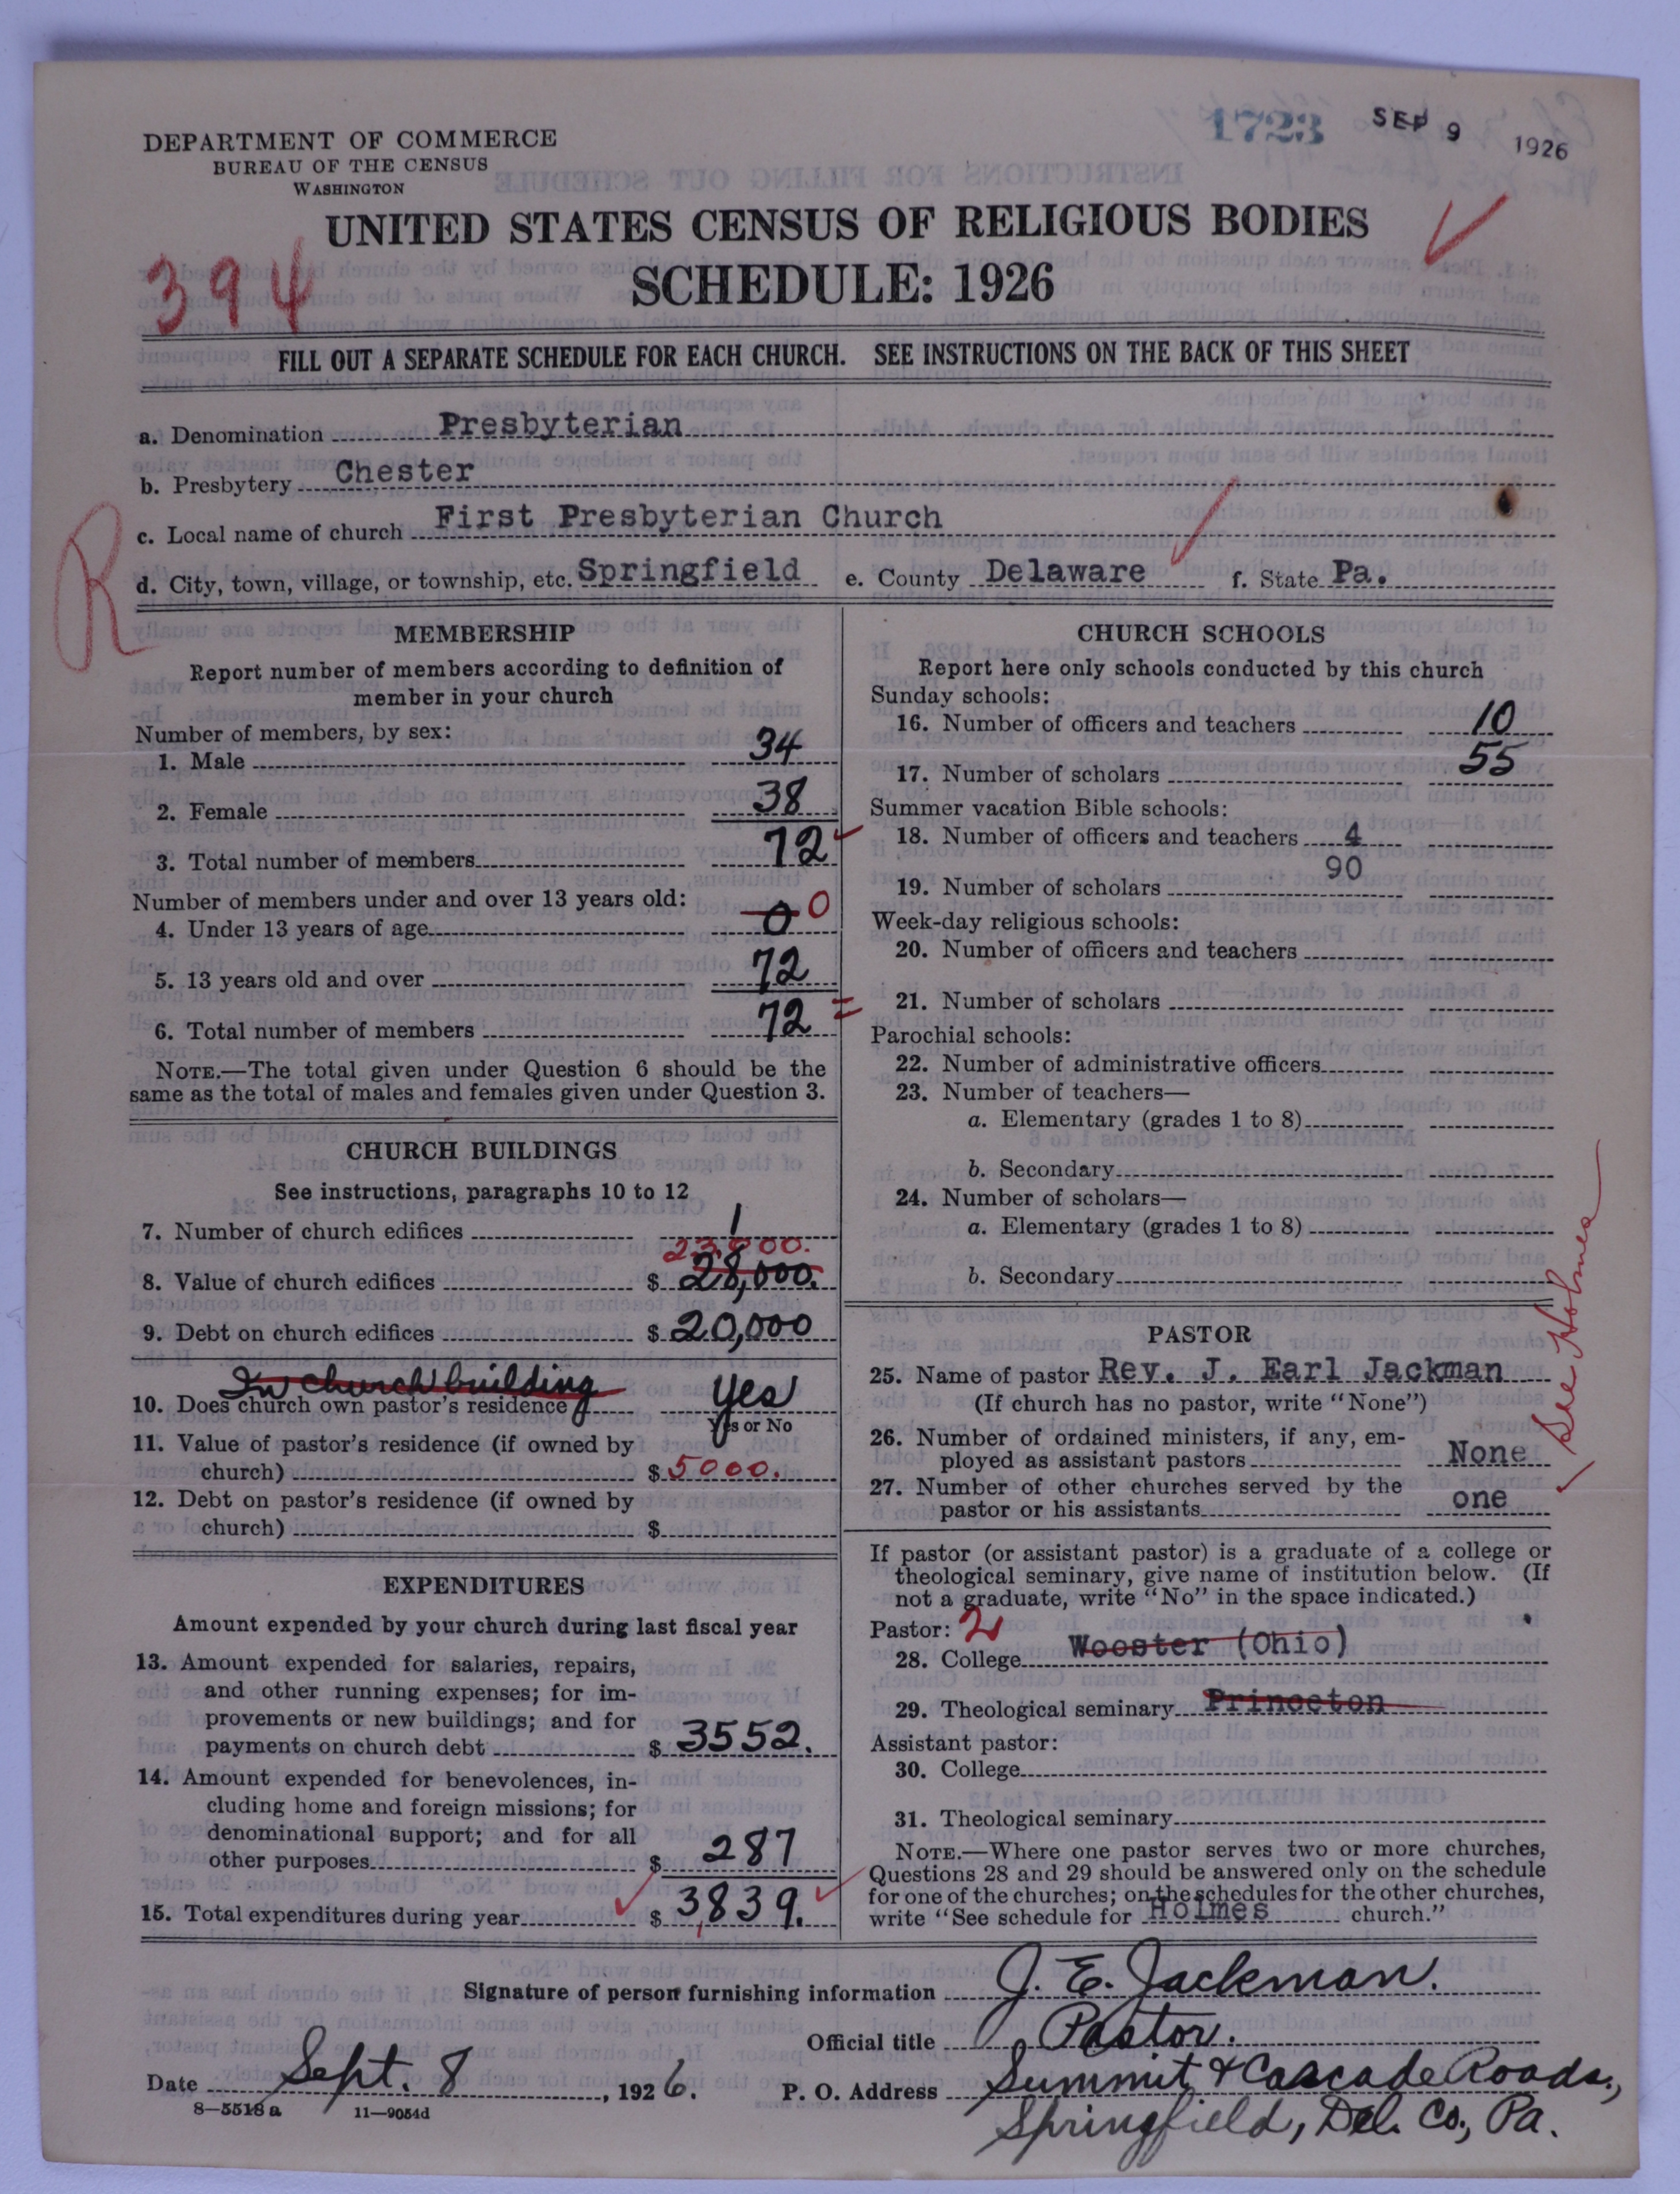 1723 SEP 9 1926
DEPARTMENT OF COMMERCE
BUREAU OF THE CENSUS
WASHINGTON
UNITED STATES CENSUS OF RELIGIOUS BODIES
394 SCHEDULE: 1926
FILL OUT A SEPARATE SCHEDULE FOR EACH CHURCH. SEE INSTRUCTIONS ON THE BACK OF THIS SHEET
a. Denomination Presbyterian
b. Presbytery Chester
c. Local name of church First Presbyterian Church
R
d. City, town, village, or township, etc. Springfield e. County Delaware f. State Pa.
MEMBERSHIP
Report number of members according to definition of
member in your church
Number of members, by sex:
1. Male 34
2. Female 38
3. Total number of members 72
Number of members under and over 13 years old:
4. Under 13 years of age 0 0
5. 13 years old and over 72
6. Total number of members 72
NOTE.—The total given under Question 6 should be the
same as the total of males and females given under Question 3.
CHURCH BUILDINGS
See instructions, paragraphs 10 to 12
7. Number of church edifices 1
23,000.
8. Value of church edifices $ 28,000.
9. Debt on church edifices $ 20,000
In church building
10. Does church own pastor's residence yes
Yes or No
11. Value of pastor's residence (if owned by
church) $ 5000.
12. Debt on pastor's residence (if owned by
church) $
EXPENDITURES
Amount expended by your church during last fiscal year
13. Amount expended for salaries, repairs,
and other running expenses; for im-
provements or new buildings; and for
payments on church debt $ 3552.
14. Amount expended for benevolences, in-
cluding home and foreign missions; for
denominational support; and for all
other purposes $ 287
15. Total expenditures during year $ 3,839.
CHURCH SCHOOLS
Report here only schools conducted by this church
Sunday schools:
16. Number of officers and teachers 10
17. Number of scholars 55
Summer vacation Bible schools:
18. Number of officers and teachers 4
19. Number of scholars 90
Week-day religious schools:
20. Number of officers and teachers
21. Number of scholars
Parochial schools:
22. Number of administrative officers
23. Number of teachers—
a. Elementary (grades 1 to 8)
b. Secondary
24. Number of scholars—
a. Elementary (grades 1 to 8)
b. Secondary
PASTOR
25. Name of pastor Rev. J. Earl Jackman
(If church has no pastor, write "None")
26. Number of ordained ministers, if any, em-
ployed as assistant pastors None
27. Number of other churches served by the
pastor or his assistants one
See Holmes
If pastor (or assistant pastor) is a graduate of a college or
theological seminary, give name of institution below. (If
not a graduate, write "No" in the space indicated.)
Pastor: 2
28. College Wooster (Ohio)
29. Theological seminary Princeton
Assistant pastor:
30. College
31. Theological seminary
NOTE.—Where one pastor serves two or more churches,
Questions 28 and 29 should be answered only on the schedule
for one of the churches; on the schedules for the other churches,
write "See schedule for Holmes church."
Signature of person furnishing information J. E. Jackman.
Official title Pastor.
Date Sept. 8, 1926. P. O. Address Summit & Cascade Roads,
8—5518a 11—9054d Springfield, Del. Co., Pa.